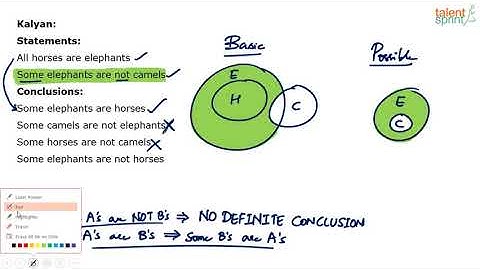 talent
sprint
Kalyan:
Statements:
All horses are elephants
Some elephants are not camels
Conclusions:
Some elephants are horses
Some camels are not elephants
Some horses are not camels
Some elephants are not horses
Basic
E
H
C
Possible
E
C
Laser Pointer
Pen
Highlighter
Eraser
Erase All Ink on Slide
A's are NOT B's ⇒ NO DEFINITE CONCLUSION
A's are B's ⇒ Some B's are A's